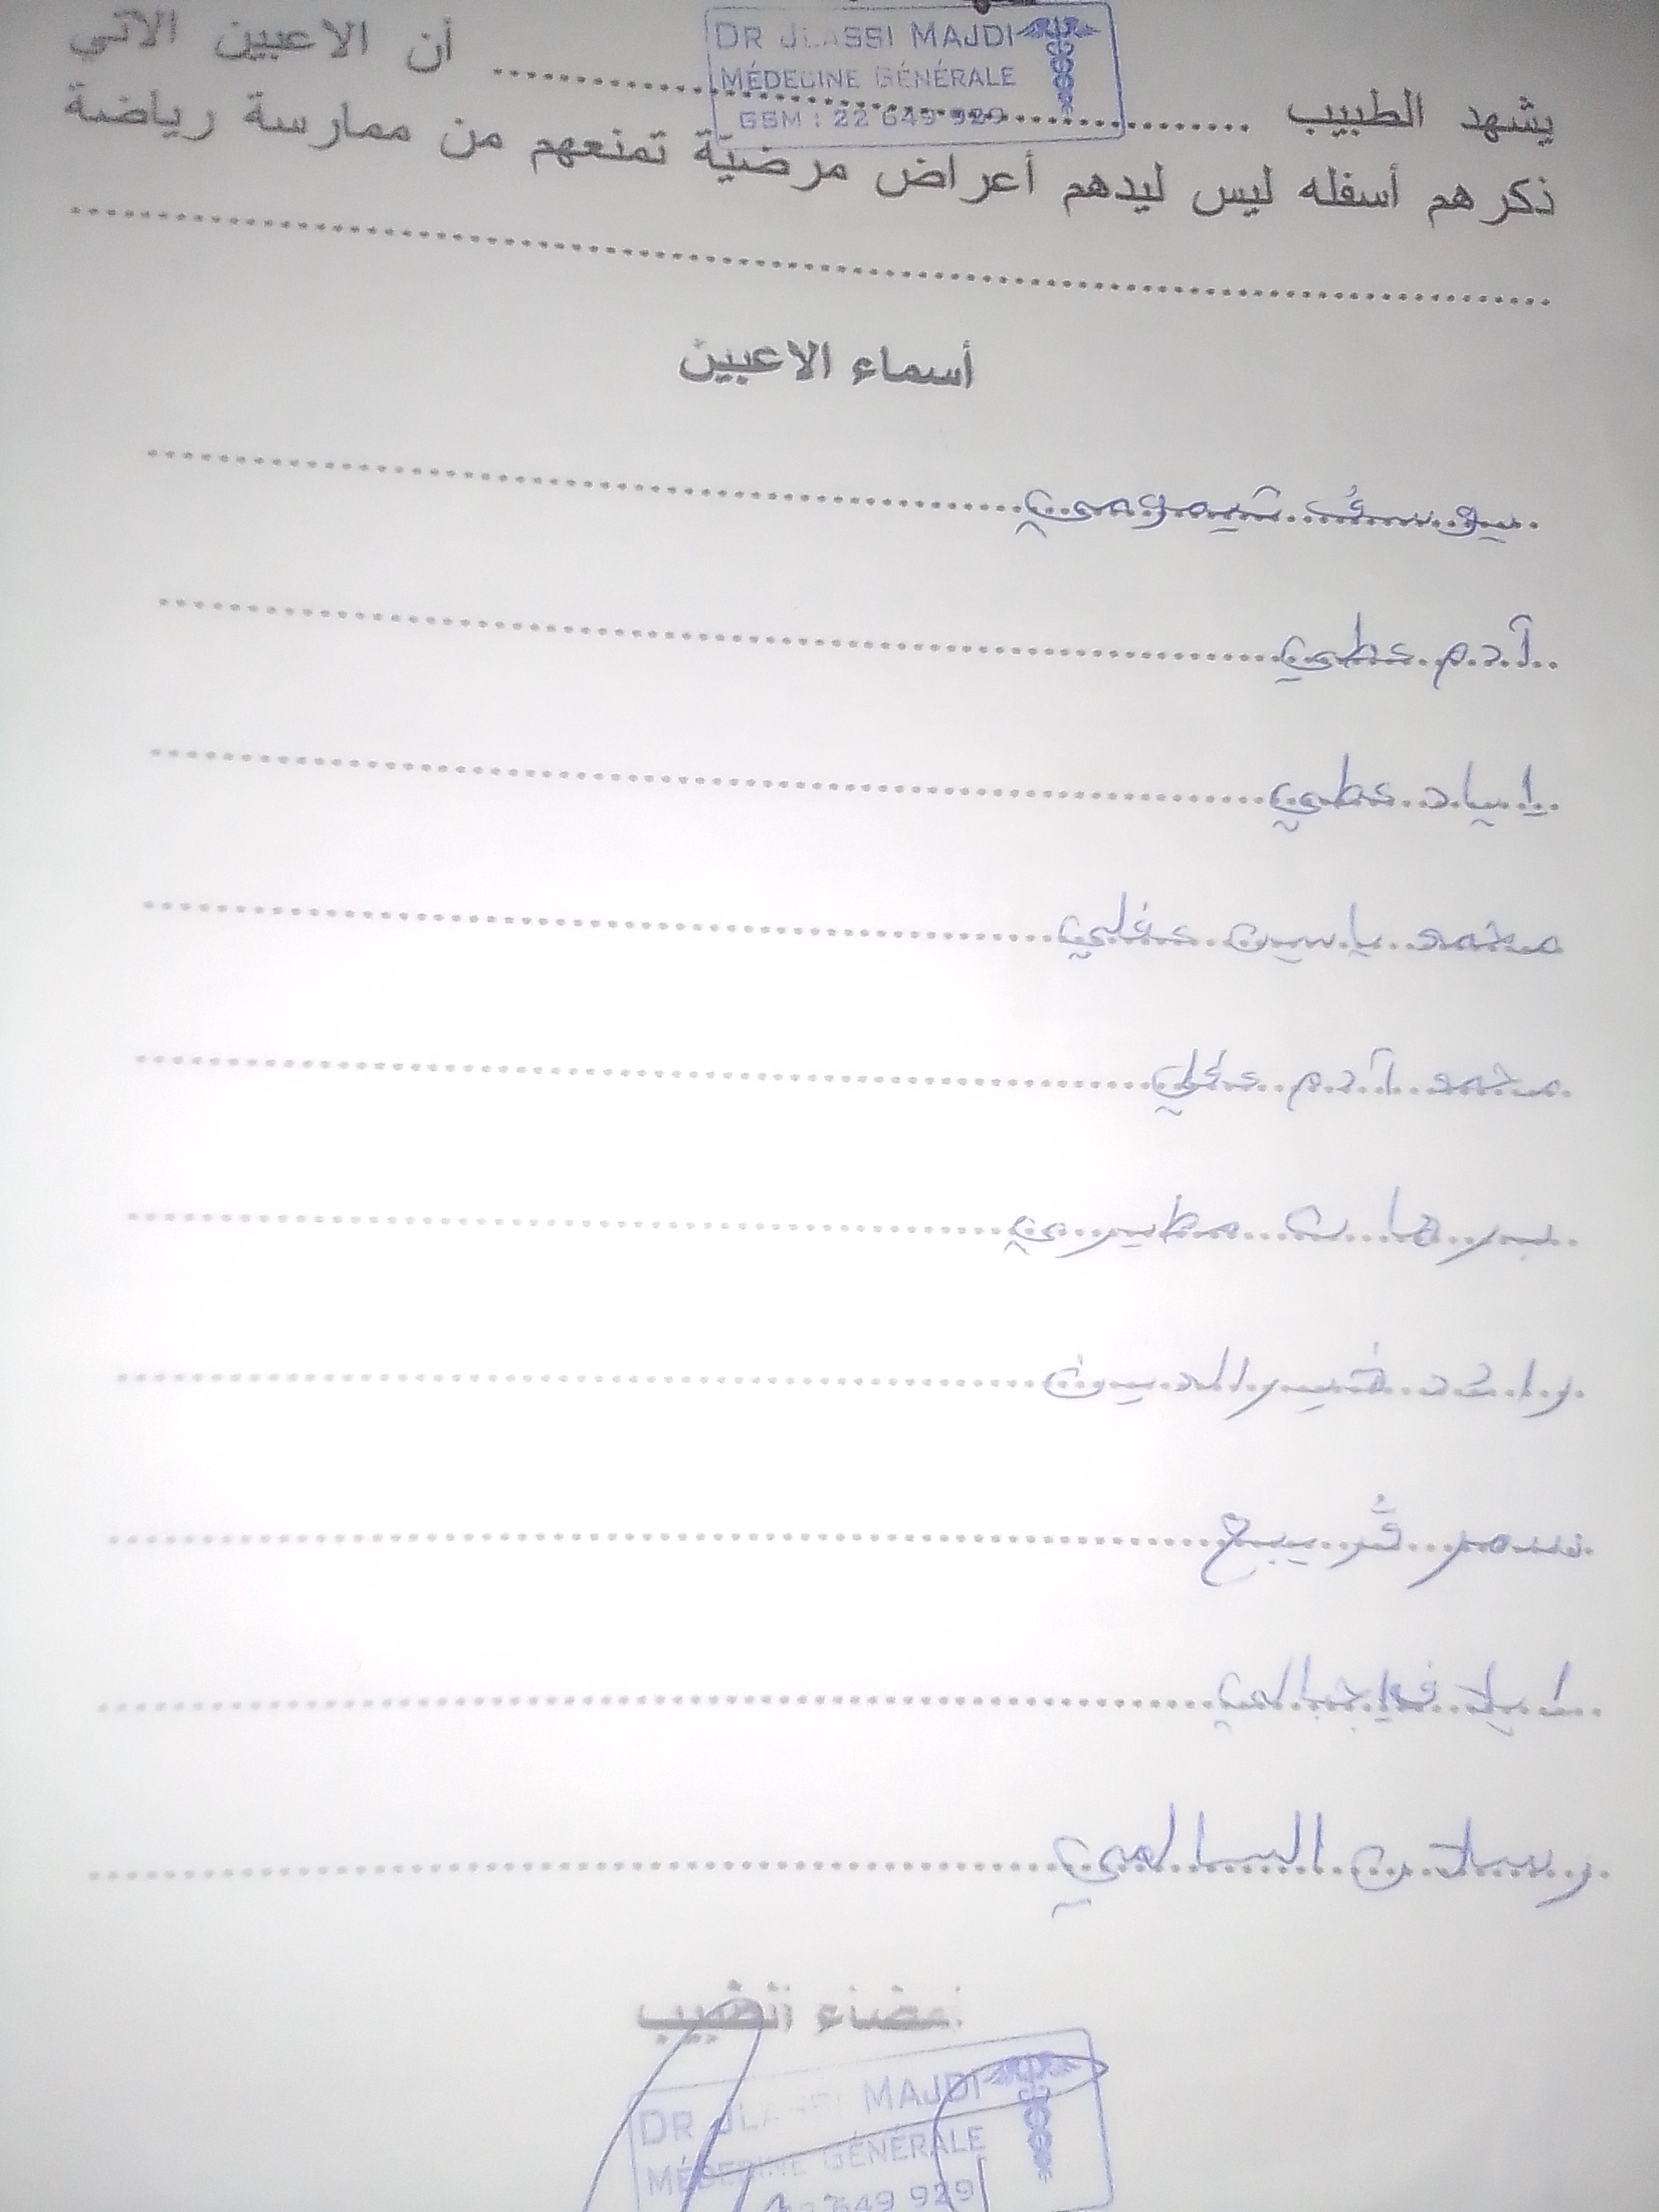 DR JLASSI MAJDI
MÉDECINE GÉNÉRALE
GSM : 22 649 929
يشهد الطبيب ........................ أن الاعبين الآتي
ذكرهم أسفله ليس ليدهم أعراض مرضيّة تمنعهم من ممارسة رياضة
أسماء الاعبين
يوسف تيمومي
آدم عطي
اياد عطي
محمد ياسين عفلي
محمد آدم
برهان مطيري
رائد خير الدين
سمر
رسلان السالمي
إمضاء الطبيب
DR JLASSI MAJDI
MÉDECINE GÉNÉRALE
22 649 929